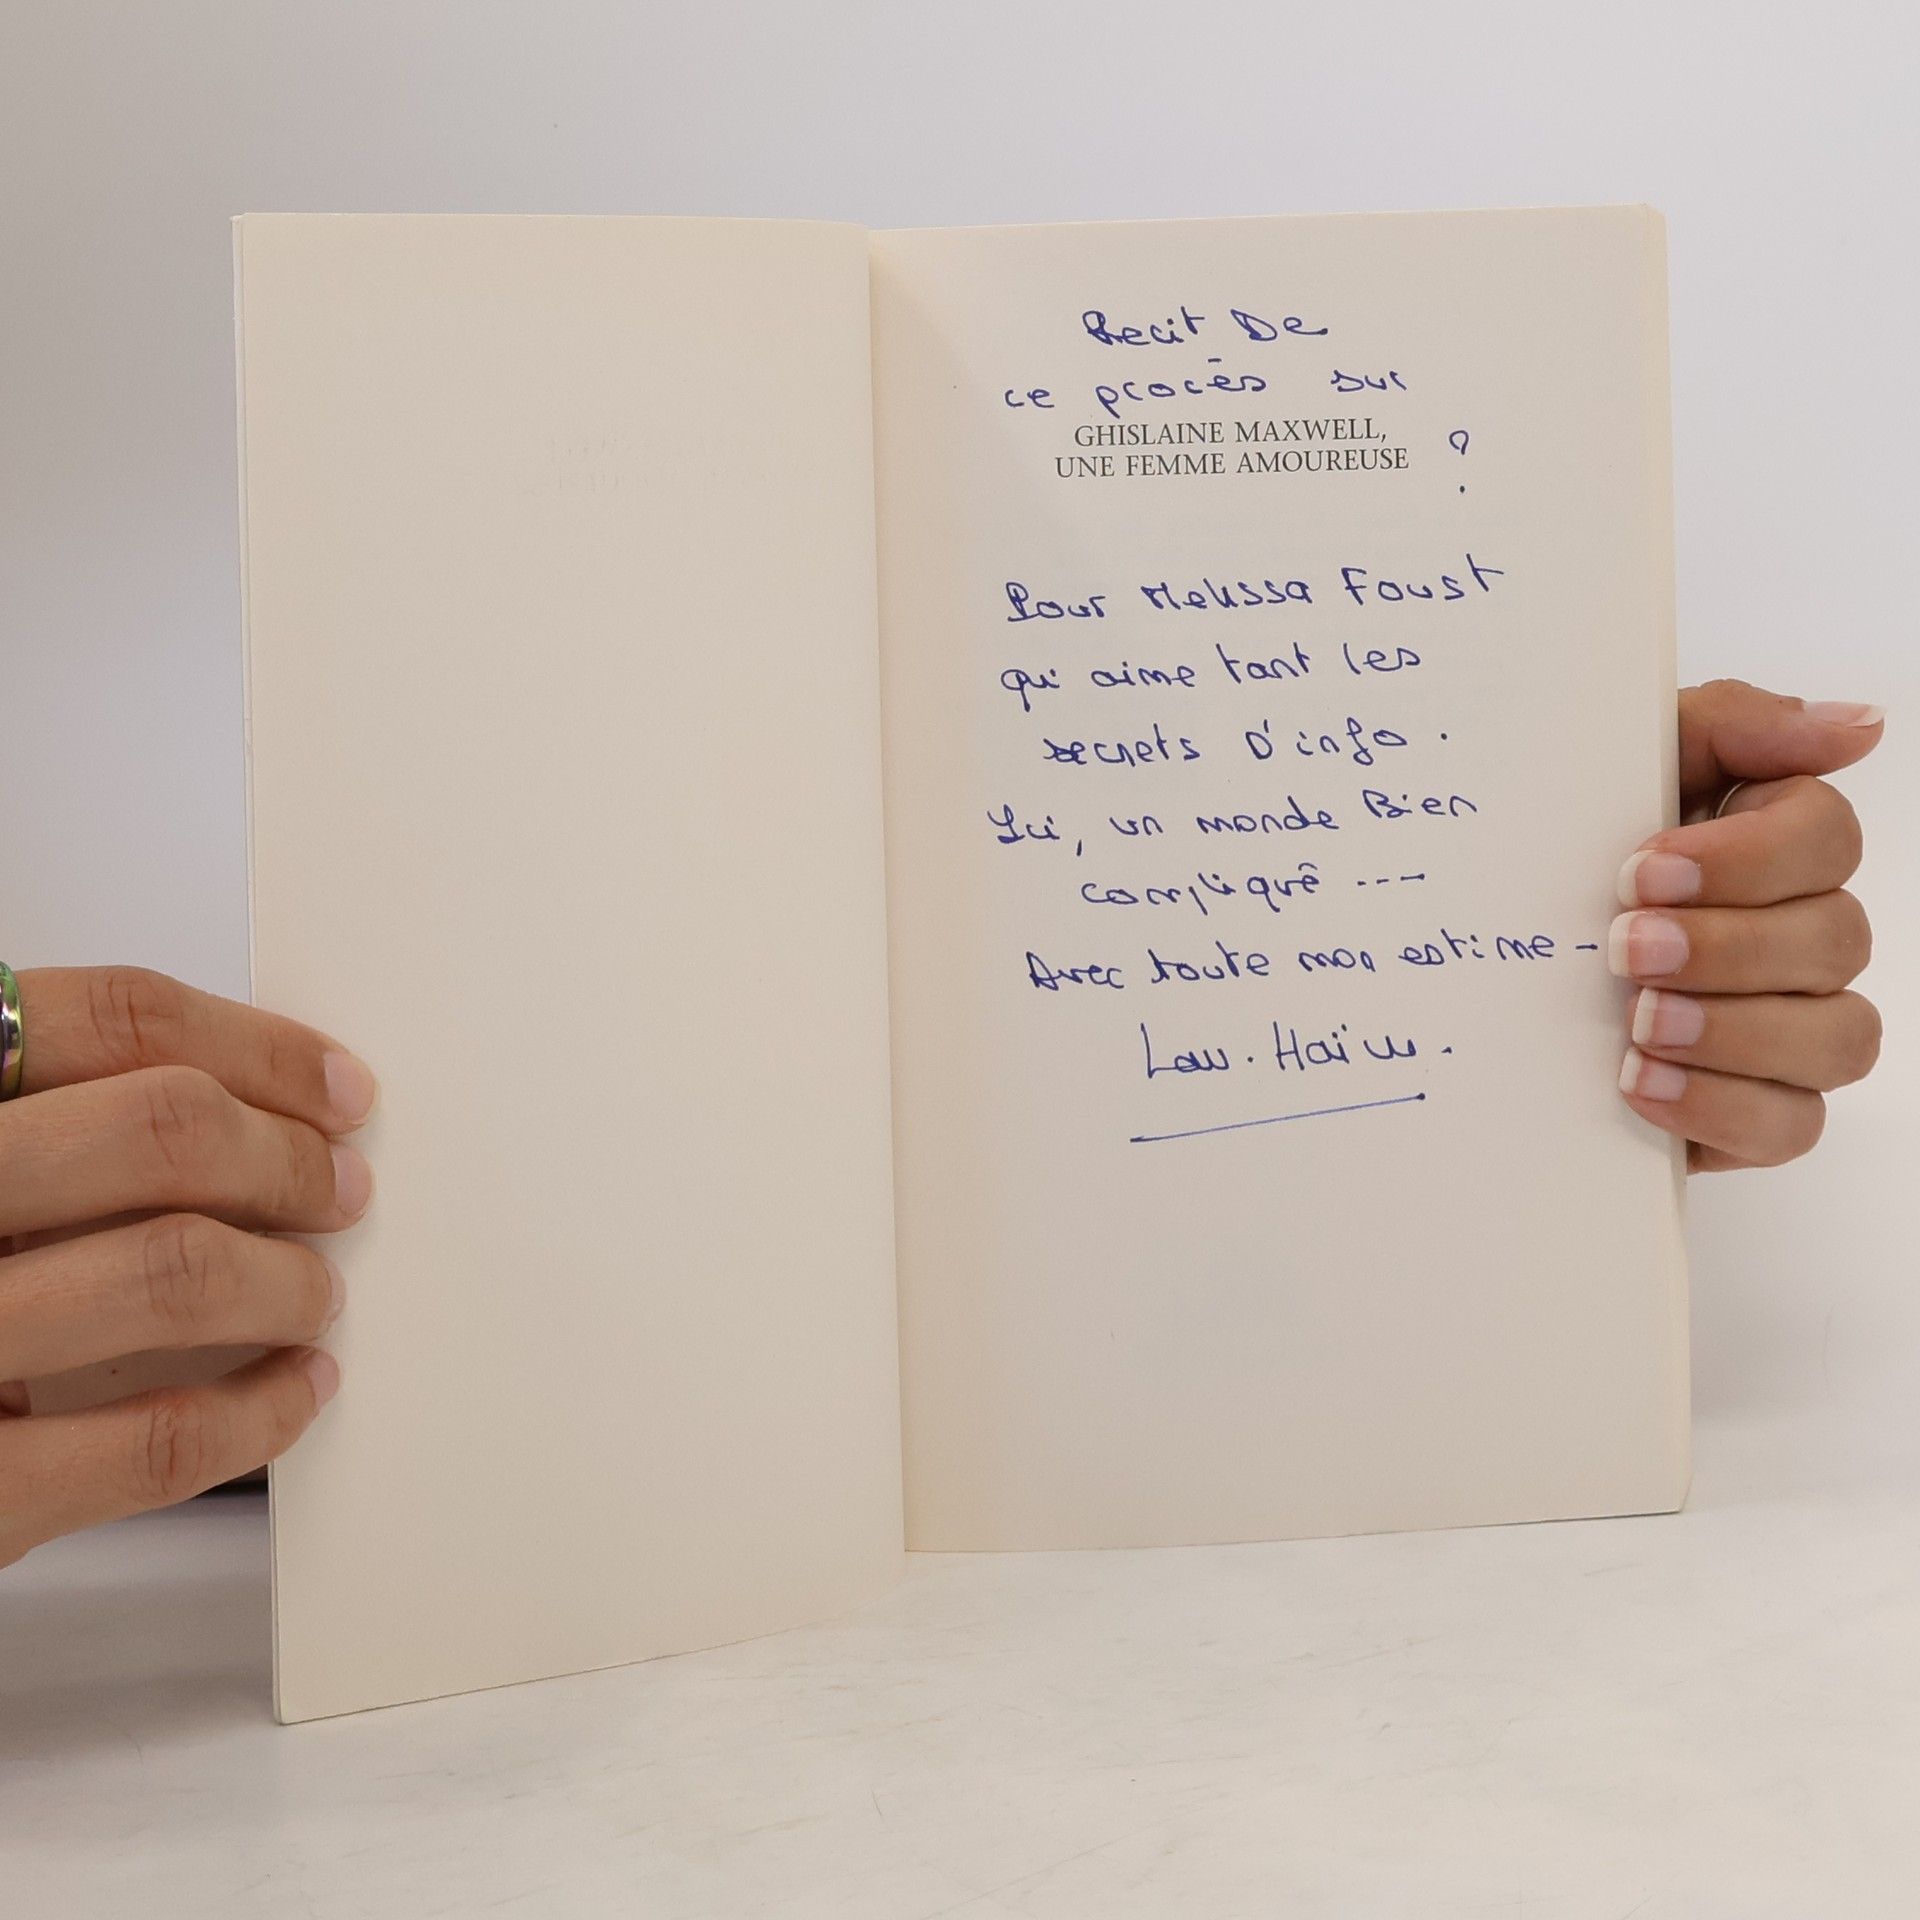 Recit De
ce procès sur
GHISLAINE MAXWELL,
UNE FEMME AMOUREUSE ?
Pour Melissa Foust
qui aime tant les
secrets D'info.
Ici, un monde Bien
compliqué ---
Avec toute mon estime -
Lau. Haïm.